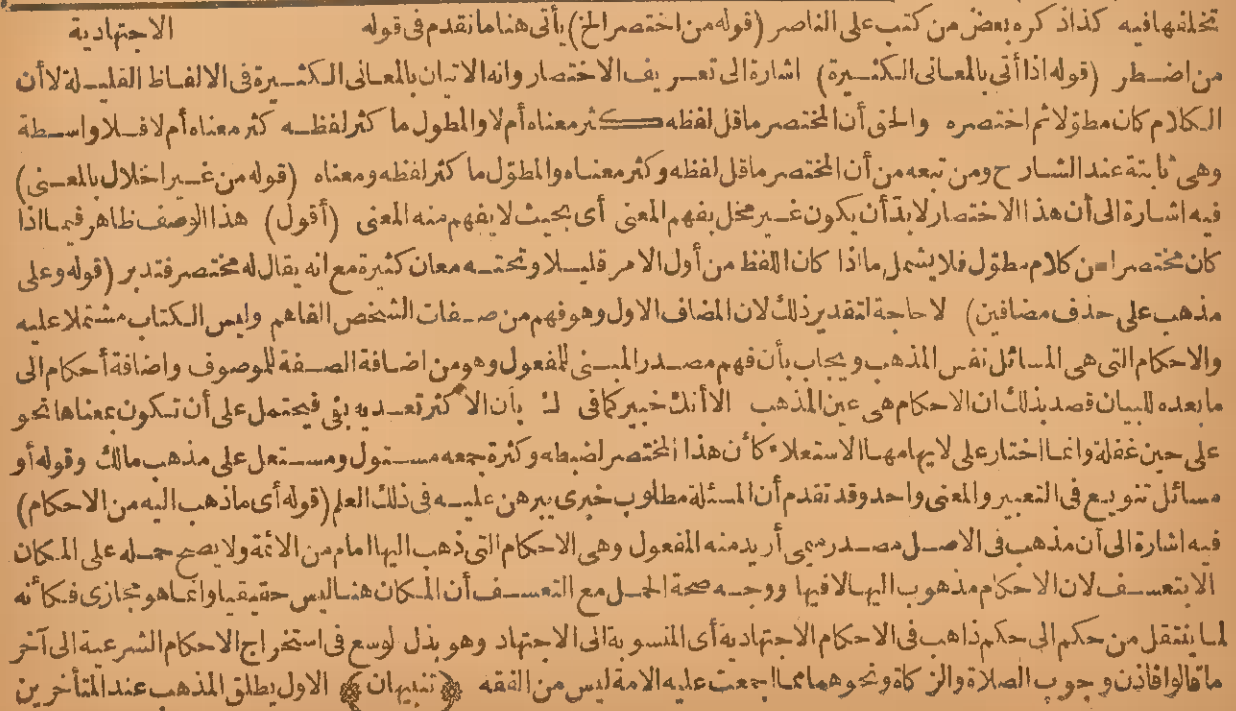 تخلفها فيه كذا ذكره بعض من كتب على الناصر (قوله من اختصر الخ) يأتي هنا ما تقدم في قوله الاجتهادية
من اضطر (قوله اذا أتى بالمعاني الكثيرة) اشارة الى تعريف الاختصار وانه الاتيان بالمعاني الكثيرة في الالفاظ القليلة لا أن
الكلام كان مطولا ثم اختصره والحق أن المختصر ما قل لفظه كثر معناه أم لا والمطول ما كثر لفظه كثر معناه أم لا فلا واسطة
وهي ثابتة عند الشارح ومن تبعه من أن المختصر ما قل لفظه وكثر معناه والمطول ما كثر لفظه ومعناه (قوله من غير اخلال بالمعنى)
فيه اشارة الى أن هذا الاختصار لا بد أن يكون غير مخل بفهم المعنى أي بحيث لا يفهم منه المعنى (أقول) هذا الوصف ظاهر فيما اذا
كان مختصرا من كلام مطول فلا يشمل ما اذا كان اللفظ من أول الامر قليلا وتحته معان كثيرة مع انه يقال له مختصر فتدبر (قوله وعلى
مذهب على حذف مضافين) لا حاجة لتقدير ذلك لان المضاف الاول وهو فهم من صفات الشخص الفاهم وليس الكتاب مشتملا عليه
والاحكام التي هي المسائل نفس المذهب ويجاب بأن فهم مصدر المبنى للمفعول وهو من اضافة الصفة للموصوف واضافة أحكام الى
ما بعده للبيان قصد بذلك ان الاحكام هي عين المذهب الا أنك خبير كما في لـ بأن الاكثر تعديه بفي فيحتمل على أن تكون بمعناها نحو
على حين غفلة وانما اختار على لايهامها الاستعلاء كأن هذا المختصر لضبطه وكثرة جمعه مستول ومستعل على مذهب مالك وقوله أو
مسائل تنويع في التعبير والمعنى واحد وقد تقدم أن المسئلة مطلوب خبري يبرهن عليه في ذلك العلم (قوله أي ما ذهب اليه من الاحكام)
فيه اشارة الى أن مذهب في الاصل مصدر ميمي أريد منه المفعول وهي الاحكام التي ذهب اليها امام من الائمة ولا يصح حمله على المكان
الا بتعسف لان الاحكام مذهوب اليها لا فيها ووجه صحة الحمل مع التعسف أن المكان هنا ليس حقيقيا وانما هو مجازى فكأنه
لما ينتقل من حكم الى حكم ذاهب في الاحكام الاجتهادية أي المنسوبة الى الاجتهاد وهو بذل لوسع في استخراج الاحكام الشرعية الى آخر
ما قالوا فاذن وجوب الصلاة والزكاة ونحوهما مما اجمعت عليه الامة ليس من الفقه ﴿تنبيهان﴾ الاول يطلق المذهب عند المتأخرين